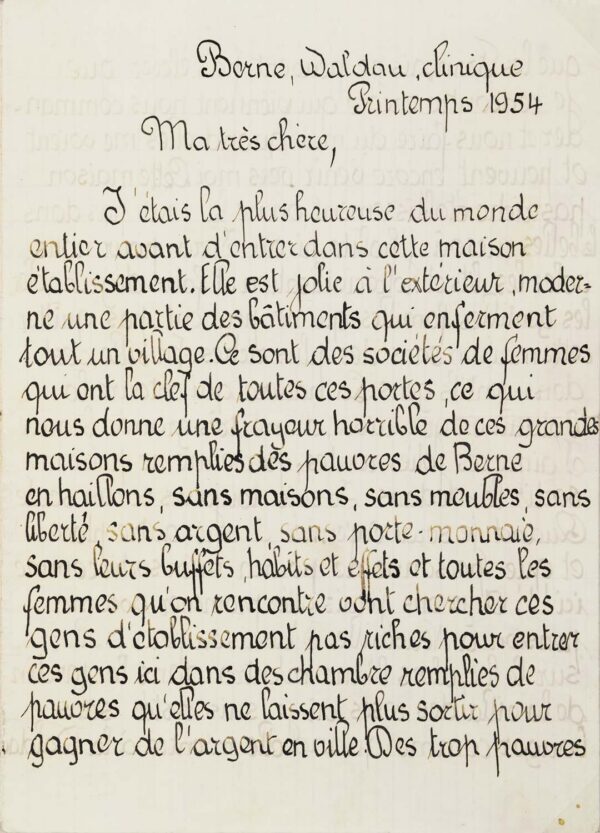 Berne, Waldau, clinique
Printemps 1954
Ma très chère,
J'étais la plus heureuse du monde
entier avant d'entrer dans cette maison
établissement. Elle est jolie à l'extérieur, moder-
ne une partie des bâtiments qui enferment
tout un village. Ce sont des sociétés de femmes
qui ont la clef de toutes ces portes, ce qui
nous donne une frayeur horrible de ces grandes
maisons remplies des pauvres de Berne
en haillons, sans maisons, sans meubles, sans
liberté, sans argent, sans porte-monnaie,
sans leurs buffets, habits et effets et toutes les
femmes qu'on rencontre vont chercher ces
gens d'établissement pas riches pour entrer
ces gens ici dans des chambre remplies de
pauvres qu'elles ne laissent plus sortir pour
gagner de l'argent en ville. Des trop pauvres